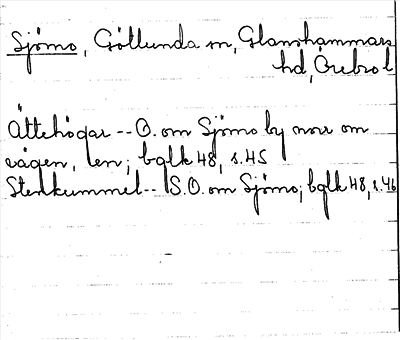 Sjömo, Götlunda sn, Glanshammars
hd, Örebro l
Ättehögar -- O. om Sjömo by norr om
vägen, len; bglk 48, s.45
Stenkummel -- S.O. om Sjömo; bglk 48, s.46